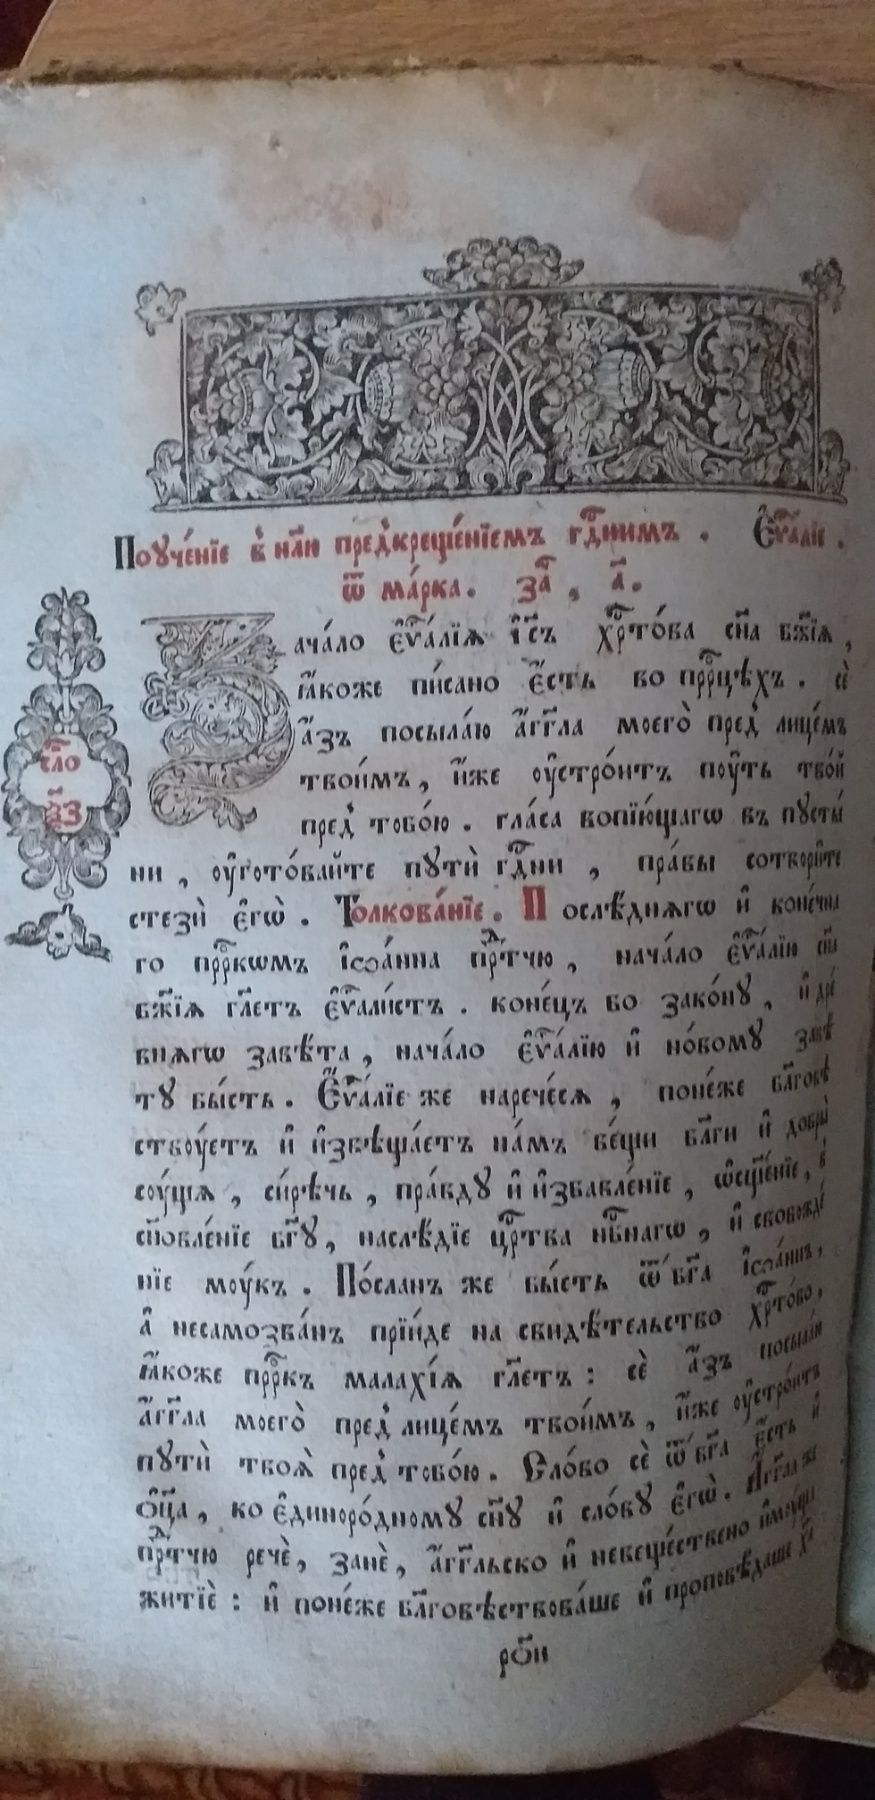 Поуче́нїе в҆ нлⷧ҇ю пред҆креще́нїемъ гдⷭ҇нимъ . Є҆ѵⷢ҇алїе .
ѿ ма́рка . заⷱ҇ , а҃ .
Зача́ло є҆ѵⷢ҇а́лїѧ і҆с҃ъ хрⷭ҇то́ва сн҃а бж҃їѧ ,
ꙗ҆́коже пи́сано є҆́сть во прⷪ҇ро́цѣхъ . сѐ
а҆́зъ посыла́ю а҆́гг҃ла моего̀ пред҆ лице́мъ
твои́мъ , и҆́же оу҆стро́итъ поу́ть тво́й
пред҆ тобо́ю . гла́са вопїю́щагѡ въ пусты́
сло҃
ѯ҃з
ни , оу҆гото́вайте пути̑ гдⷭ҇ни , пра́вы сотвори́те
стези̑ є҆гѡ̀ . Толкова́нїе . П ослѣ́днѧгѡ и҆ коне́чна
го прⷪ҇ркѡмъ і҆ѡа́нна прⷣтчю , нача́ло є҆ѵⷢ҇а́лїю сн҃а
бж҃їѧ гл҃етъ є҆ѵⷢ҇али́стъ . коне́цъ бо зако́ну , и҆ дре́
внѧгѡ завѣ́та , нача́ло є҆ѵⷢ҇а́лїю и҆ но́вому завѣ́
ту бы́сть . Є҆ѵⷢ҇а́лїе же нарече́сѧ , поне́же бл҃говѣ́
ствоу́етъ и҆ и҆звѣща́етъ на́мъ ве́щи бл҃ги и҆ добры̀
соу́щїѧ , си́рѣчь , пра́вду и҆ и҆збавле́нїе , ѡ҆сщ҃е́нїе , в҆
сн҃овле́нїе бг҃у , наслѣ́дїе црⷭ҇тва нбⷭ҇нагѡ , и҆ свобожде́
нїе моу́къ . По́сланъ же бы́сть ѿ бг҃а і҆ѡа́ннъ ,
а҆ несамозва́нъ прїи́де на свидѣ́тельство хрⷭ҇то́во ,
ꙗ҆́коже прⷪ҇ркъ мала́хїѧ гл҃етъ : сѐ а҆́зъ посыла́ю
а҆́гг҃ла моего̀ пред҆ лице́мъ твои́мъ , и҆́же оу҆стро́итъ
пути̑ твоѧ̀ пред҆ тобо́ю . Сло́во сѐ ѿ бг҃а є҆́сть и҆
ѻ҆ц҃а , ко є҆диноро́дному сн҃у и҆ сло́ву є҆гѡ̀ . А҆́гг҃ла же
прⷣтчю речѐ , занѐ , а҆́гг҃льско и҆ невеще́ствено и҆мѹ́щи
житїѐ : и҆ поне́же бл҃говѣствова́ше и҆ проповѣ́даше хⷭ҇а
ро҃и